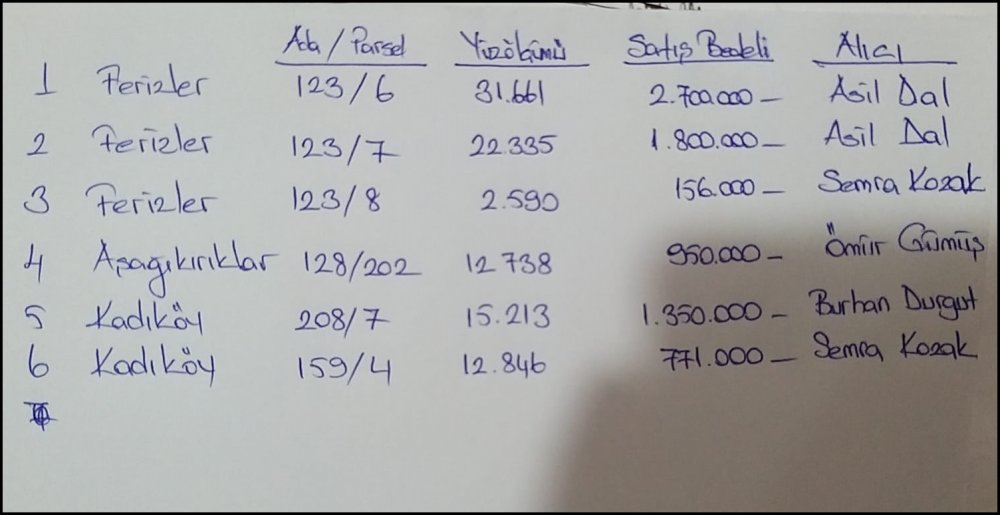 Ada / Parsel Yüzölçümü Satış Bedeli Alıcı
1 Ferizler 123/6 31.661 2.700.000— Asil Dal
2 Ferizler 123/7 22.335 1.800.000— Asil Dal
3 Ferizler 123/8 2.590 156.000— Semra Kozak
4 Aşağıkırıklar 128/202 12 738 950.000— Ömür Gümüş
5 Kadıköy 208/7 15.213 1.350.000— Burhan Durgut
6 Kadıköy 159/4 12.846 771.000— Semra Kozak